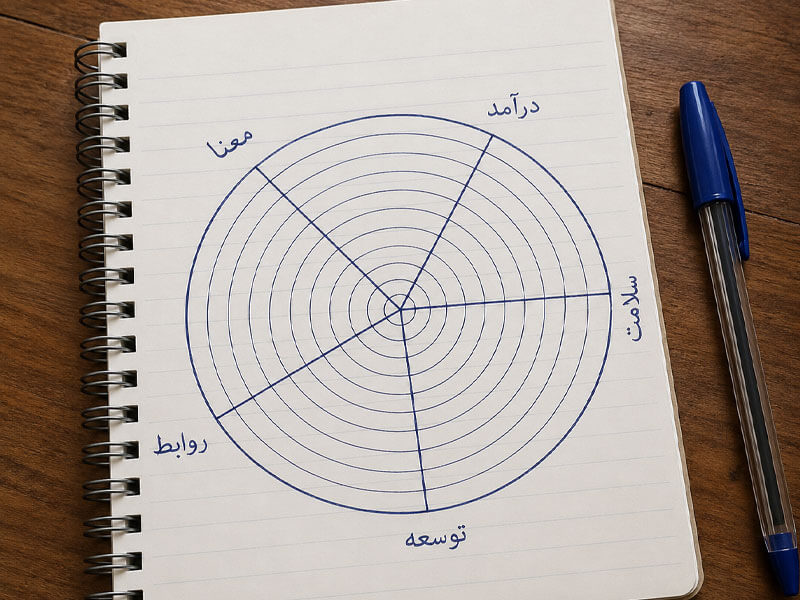 درآمد
معنا
سلامت
روابط
توسعه